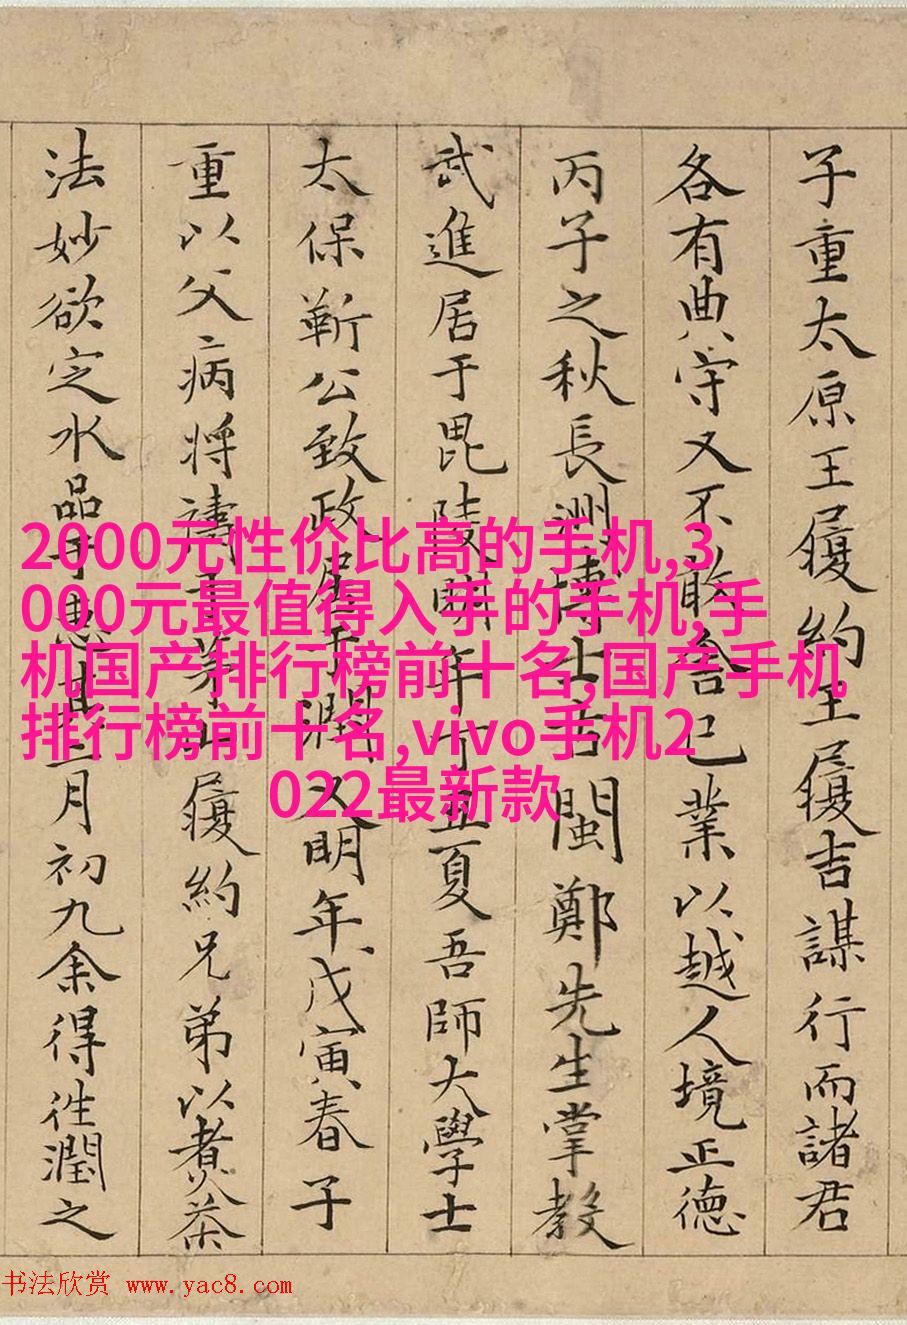 子重太原王履約王履吉謀行而諸君
各有典守又不敢舍己業以越人境正德
丙子之秋長洲博士古閩鄭先生掌教
武進居于毘陵明年丁丑夏吾師大學士
太保靳公致政居于潤又明年戊寅春子
重以父病將禱于茅山履約兄弟以煮茶
法妙欲定水品于惠其三月初九余得往潤之
2000元性价比高的手机,3
000元最值得入手的手机,手
机国产排行榜前十名,国产手机
排行榜前十名,vivo手机2
022最新款
书法欣赏 www.yac8.com